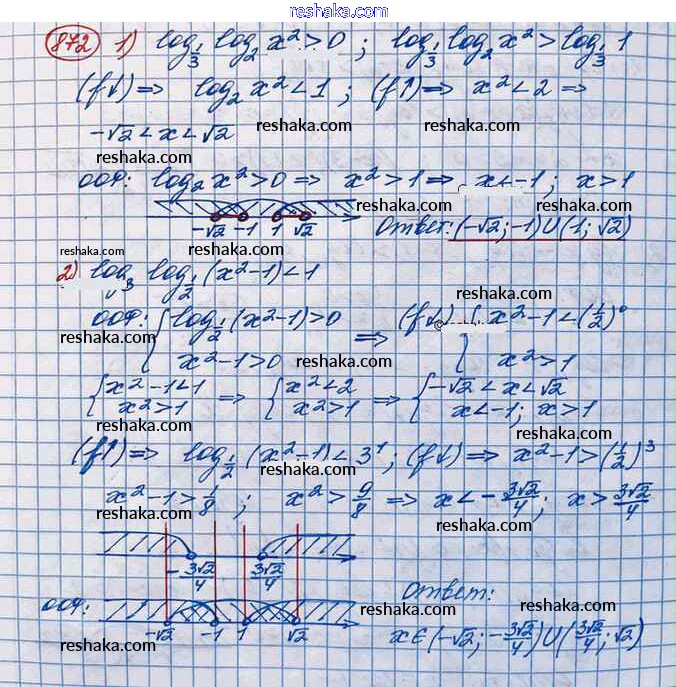 www.reshaka.com
872 1) log_{1/3} log_2 x² > 0 ; log_{1/3} log_2 x² > log_{1/3} 1
(f↓) => log_2 x² < 1 ; (f↑) => x² < 2 =>
-√2 < x < √2
reshaka.com reshaka.com
reshaka.com
ООФ: log_2 x² > 0 => x² > 1 => x < -1 ; x > 1
reshaka.com
-√2 -1 1 √2 Ответ: (-√2; -1) ∪ (1; √2)
reshaka.com
2) log_3 log_{1/2} (x²-1) < 1
reshaka.com reshaka.com
ООФ: { log_{1/2} (x²-1) > 0 => (f↓) { x²-1 < (1/2)⁰
reshaka.com
x²-1 > 0 { x² > 1
reshaka.com
{ x²-1 < 1 => { x² < 2 => { -√2 < x < √2
x² > 1 x² > 1 x < -1; x > 1
reshaka.com reshaka.com
(f↑) => log_{1/2} (x²-1) < 3¹ ; (f↓) => x²-1 > (1/2)³
reshaka.com
x²-1 > 1/8 ; x² > 9/8 => x < -3√2/4 ; x > 3√2/4
reshaka.com reshaka.com
-3√2/4 3√2/4
reshaka.com
ООФ: Ответ:
reshaka.com
-√2 -1 1 √2 x ∈ (-√2; -3√2/4) ∪ (3√2/4; √2)
reshaka.com reshaka.com